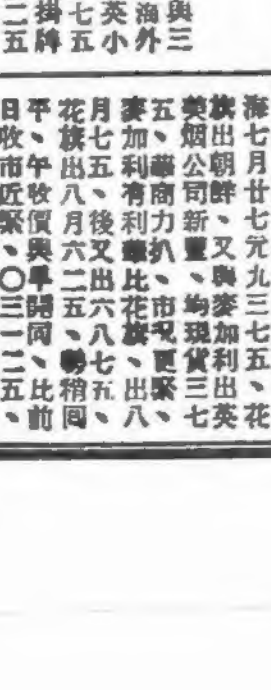 與三
海外
英小
七五
掛牌
二五
海七月廿七元九三七五、花
旗出朝鮮、又與麥加利出英
美烟公司新豐、均現貨三七
五、華商力扒、市況更緊、
麥加利有利華比花旗、出八
月七五、後又出六八七五、
花旗出八月六二五、勢稍回
平、午收價與早開同、比前
日收市近緊、〇三一二五、